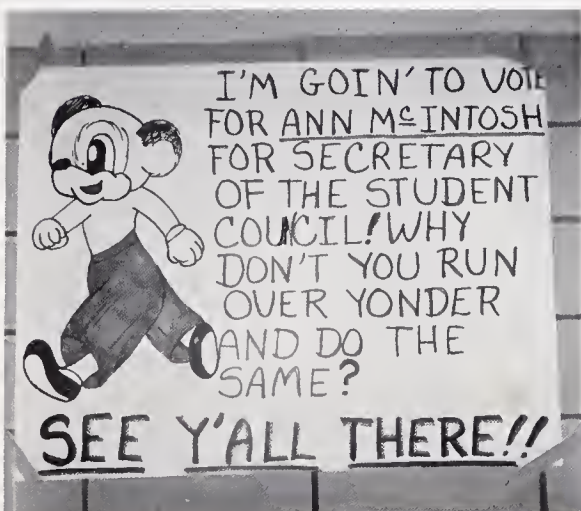 I'M GOIN' TO VOTE
FOR ANN McINTOSH
FOR SECRETARY
OF THE STUDENT
COUNCIL! WHY
DON'T YOU RUN
OVER YONDER
AND DO THE
SAME?
SEE Y'ALL THERE!!